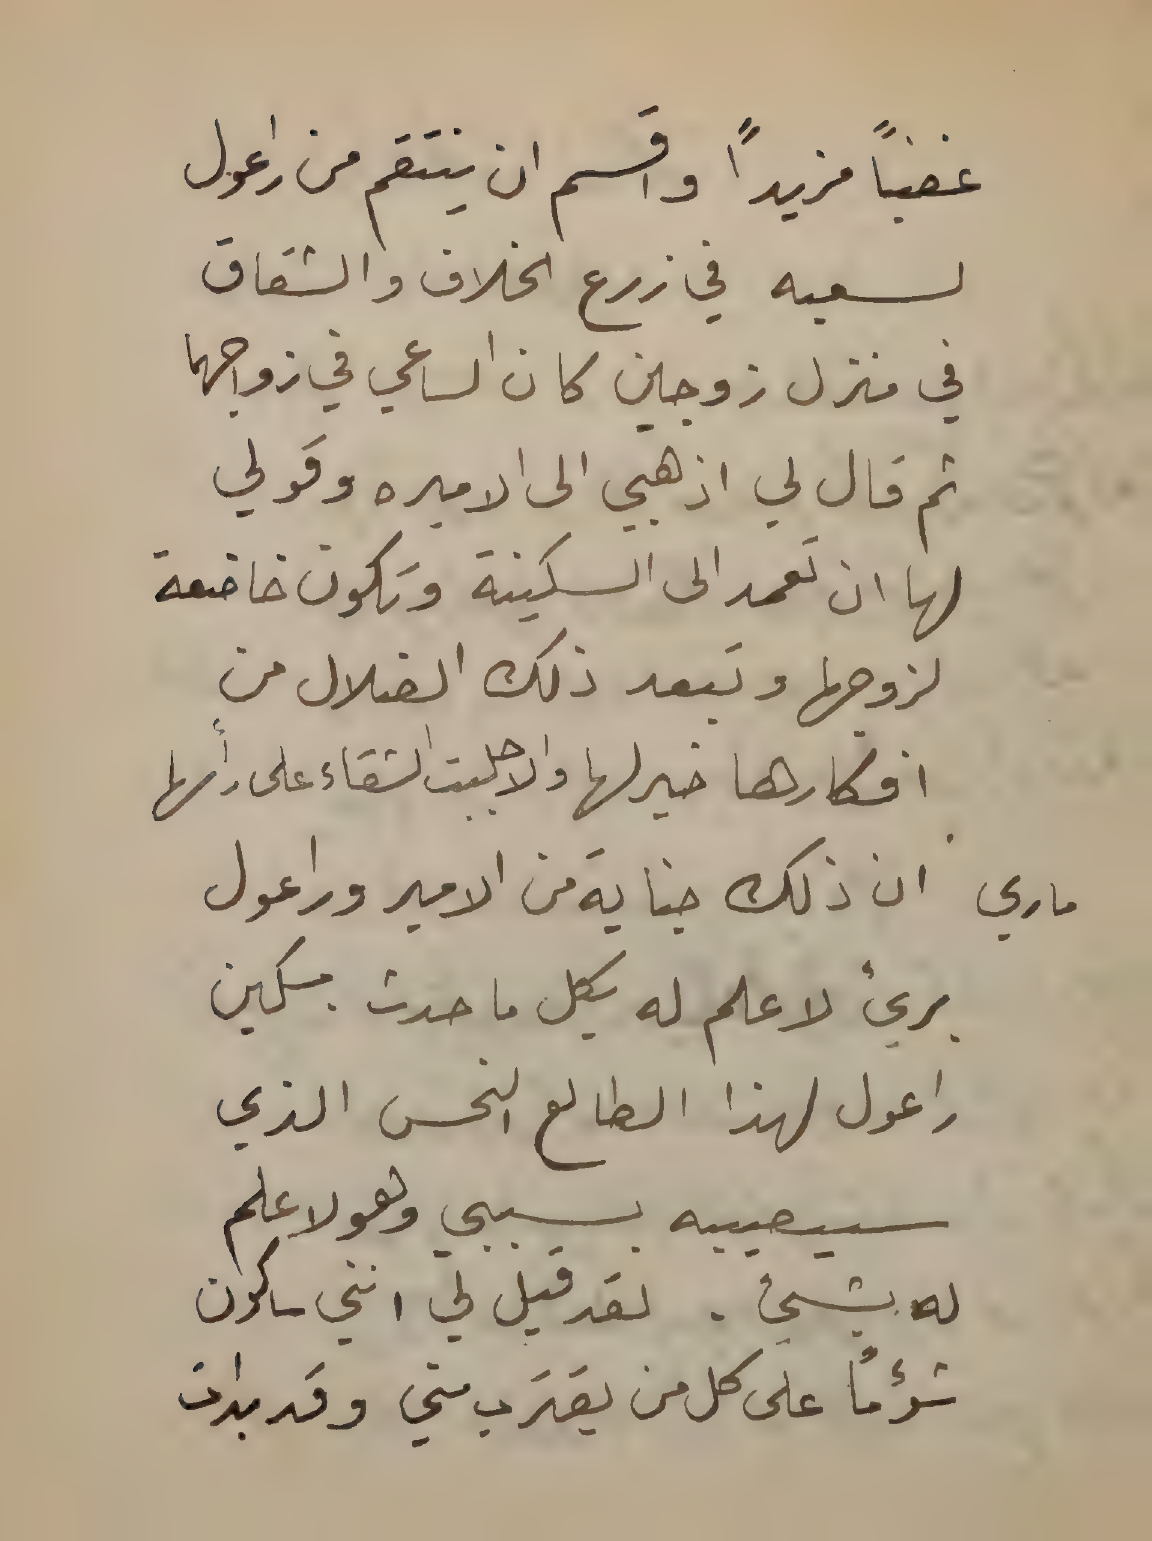 غضباً مزيداً واقسم ان ينتقم من راعول
لسعيه في زرع الخلاف والشقاق
في منزل زوجين كان الساعي في زواجهما
ثم قال لي اذهبي الى الاميره وقولي
لها ان تعمد الى السكينة وتكون خاضعة
لزوجها وتبعد ذلك الضلال من
افكارها خير لها والا جلبت الشقاء على رأسها
ماري ان ذلك جناية من الامير وراعول
بريءٌ لا علم له بكل ما حدث . مسكين
راعول لهذا الطالع النحس الذي
سيصيبه بسببي وهو لا علم
له بشيءٍ . لقد قيل لي انني ساكون
شؤماً على كل من يقترب مني وقد بدات